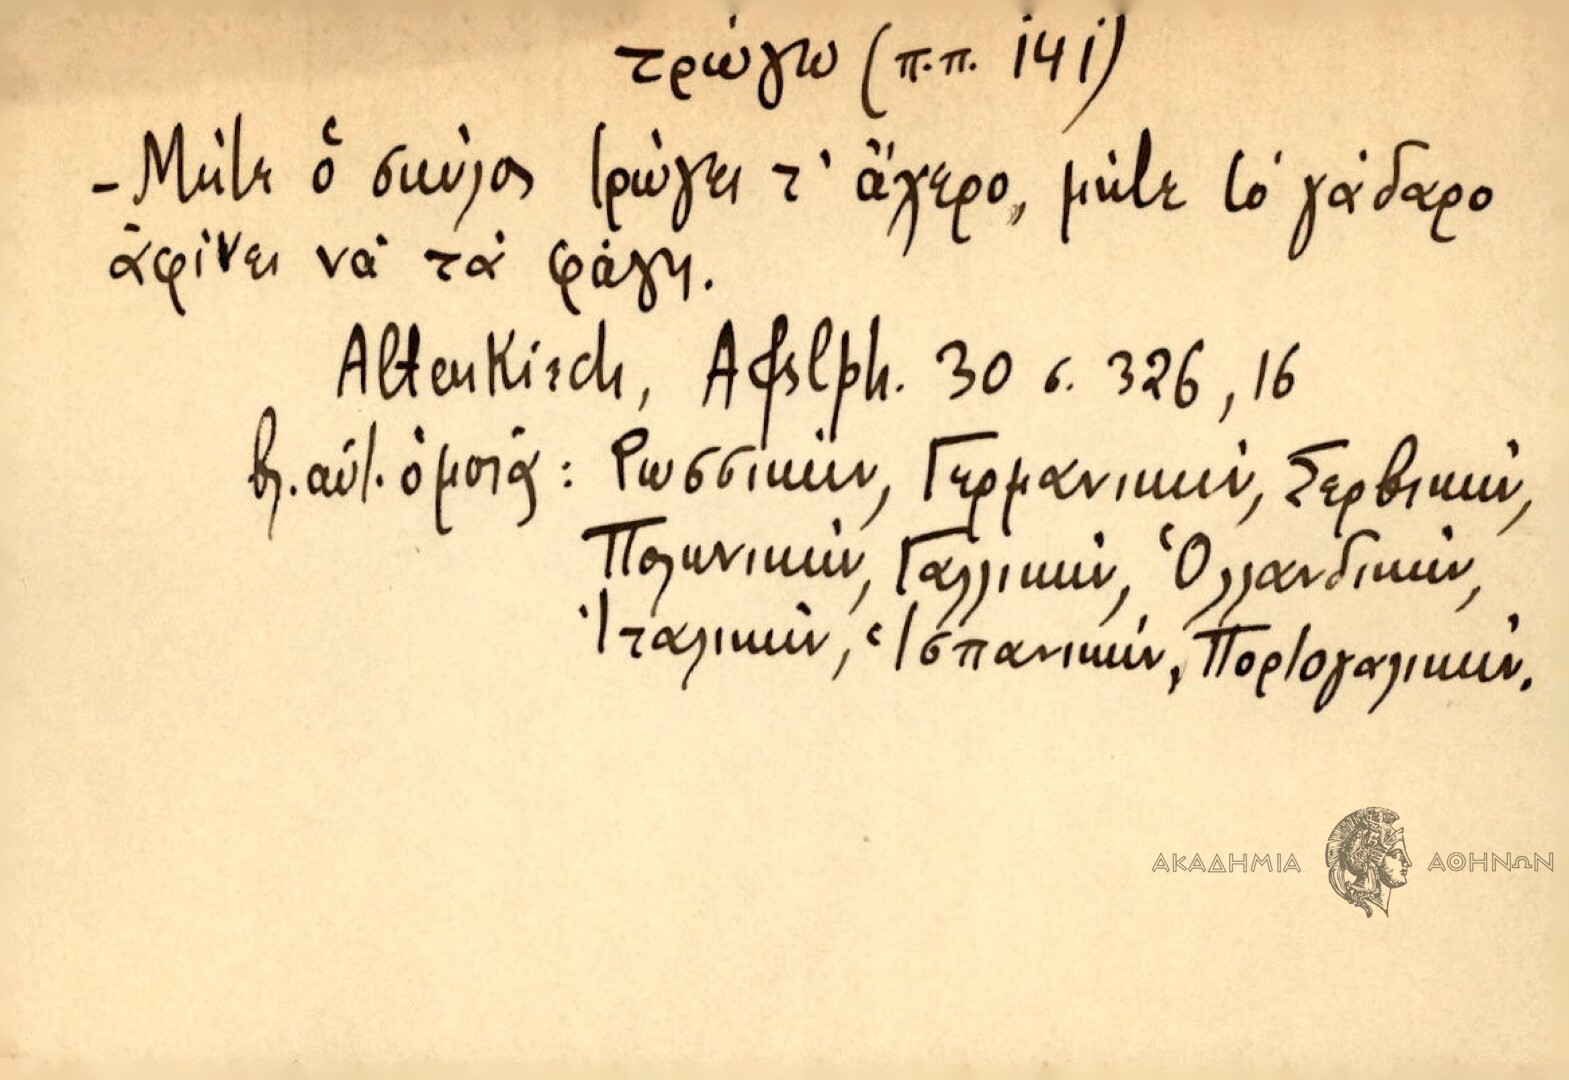 τρώγω (π.π. 141)
- Μήτε ὁ σκύλος τρώγει τ' ἄχερο, μήτε τό γάδαρο
ἀφίνει νά τά φάγη.
Altenkirch, Afslph. 30 σ. 326, 16
βλ. αὐτ. ὁμοια: Ρωσσικήν, Γερμανικήν, Σερβικήν,
Πολωνικήν, Γαλλικήν, Ὁλλανδικήν,
Ἰταλικήν, Ἱσπανικήν, Πορτογαλικήν.
ΑΚΑΔΗΜΙΑ ΑΘΗΝΩΝ